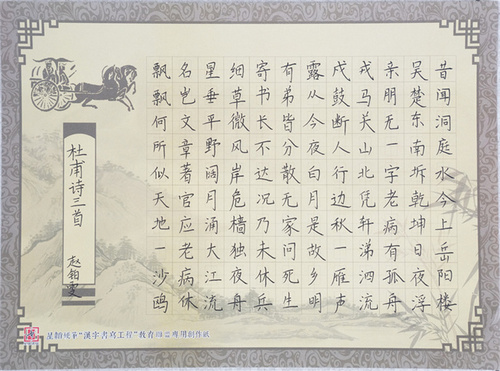 昔闻洞庭水今上岳阳楼
吴楚东南坼乾坤日夜浮
亲朋无一字老病有孤舟
戎马关山北凭轩涕泗流
戍鼓断人行边秋一雁声
露从今夜白月是故乡明
有弟皆分散无家问死生
寄书长不达况乃未休兵
细草微风岸危樯独夜舟
星垂平野阔月涌大江流
名岂文章著官应老病休
飘飘何所似天地一沙鸥
杜甫诗三首
赵
"漢字書寫工程"教育